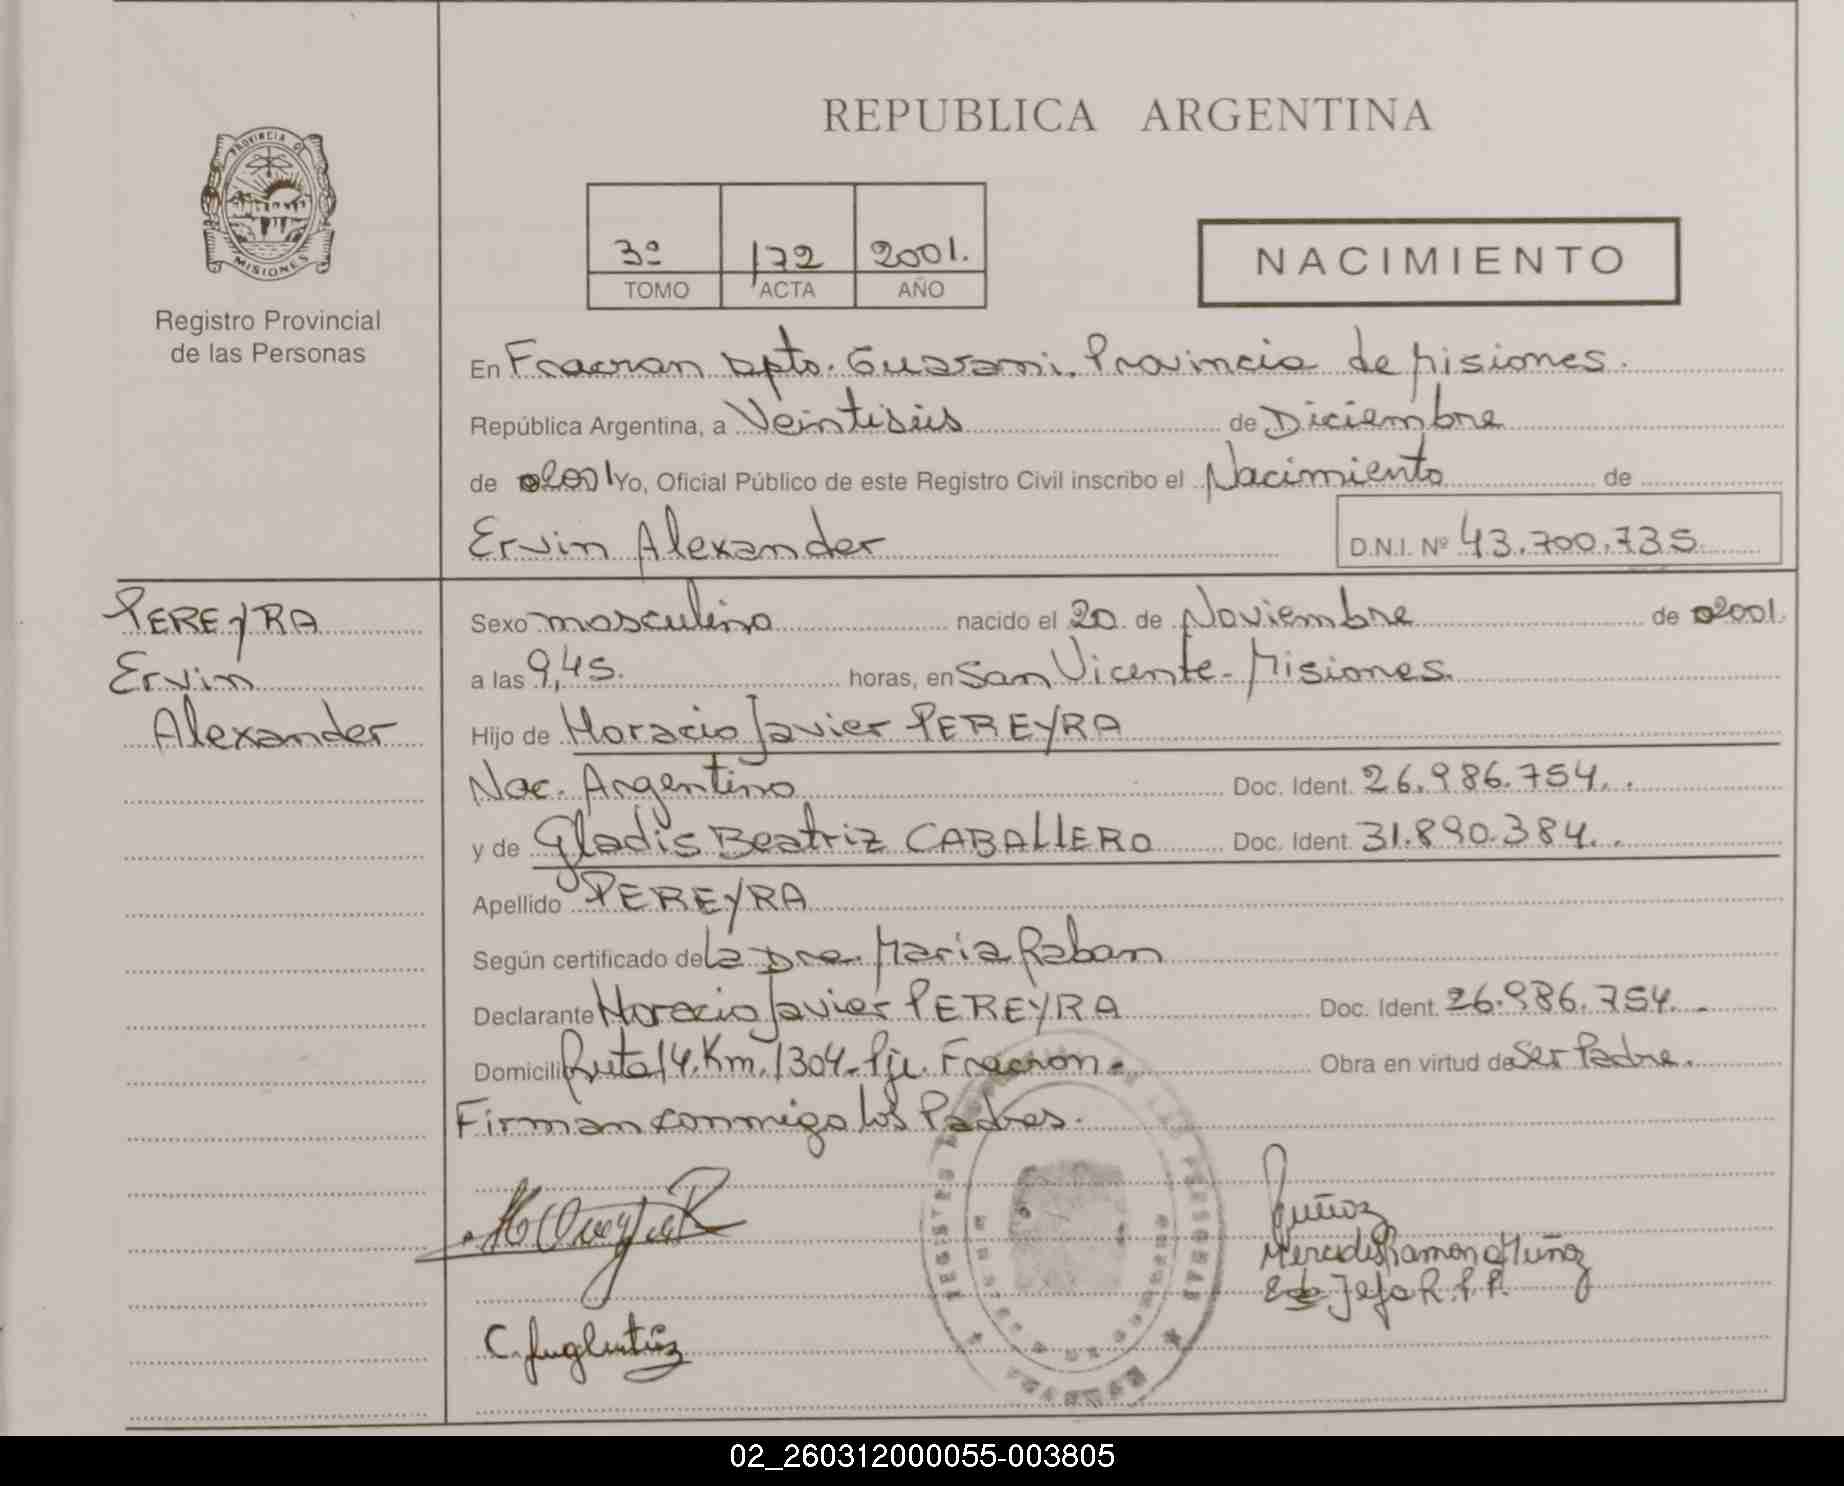 REPUBLICA ARGENTINA
PROVINCIA D
MISIONES
Registro Provincial
de las Personas
3º 172 2001.
TOMO ACTA AÑO
NACIMIENTO
En Fracran Dpto. Guarani. Provincia de Misiones.
República Argentina, a Veintiséis de Diciembre
de 2001 Yo, Oficial Público de este Registro Civil inscribo el Nacimiento de
Ervin Alexander D.N.I. Nº 43.700.735
PEREYRA
Ervin
Alexander
Sexo masculino nacido el 20 de Noviembre de 2001.
a las 9,45. horas, en San Vicente - Misiones.
Hijo de Horacio Javier PEREYRA
Nac. Argentino Doc. Ident. 26.986.754.
y de Gladis Beatriz CABALLERO Doc. Ident. 31.890.384.
Apellido PEREYRA
Según certificado de La Dra. Maria Raban
Declarante Horacio Javier PEREYRA Doc. Ident. 26.986.754.
Domicilio Ruta 14. Km. 1304. Pje. Fracron. Obra en virtud de Ser Padre.
Firman conmigo los Padres.
Muñoz
Mercedes Ramona Muñoz
Jefa R.P.P.
02_260312000055-003805